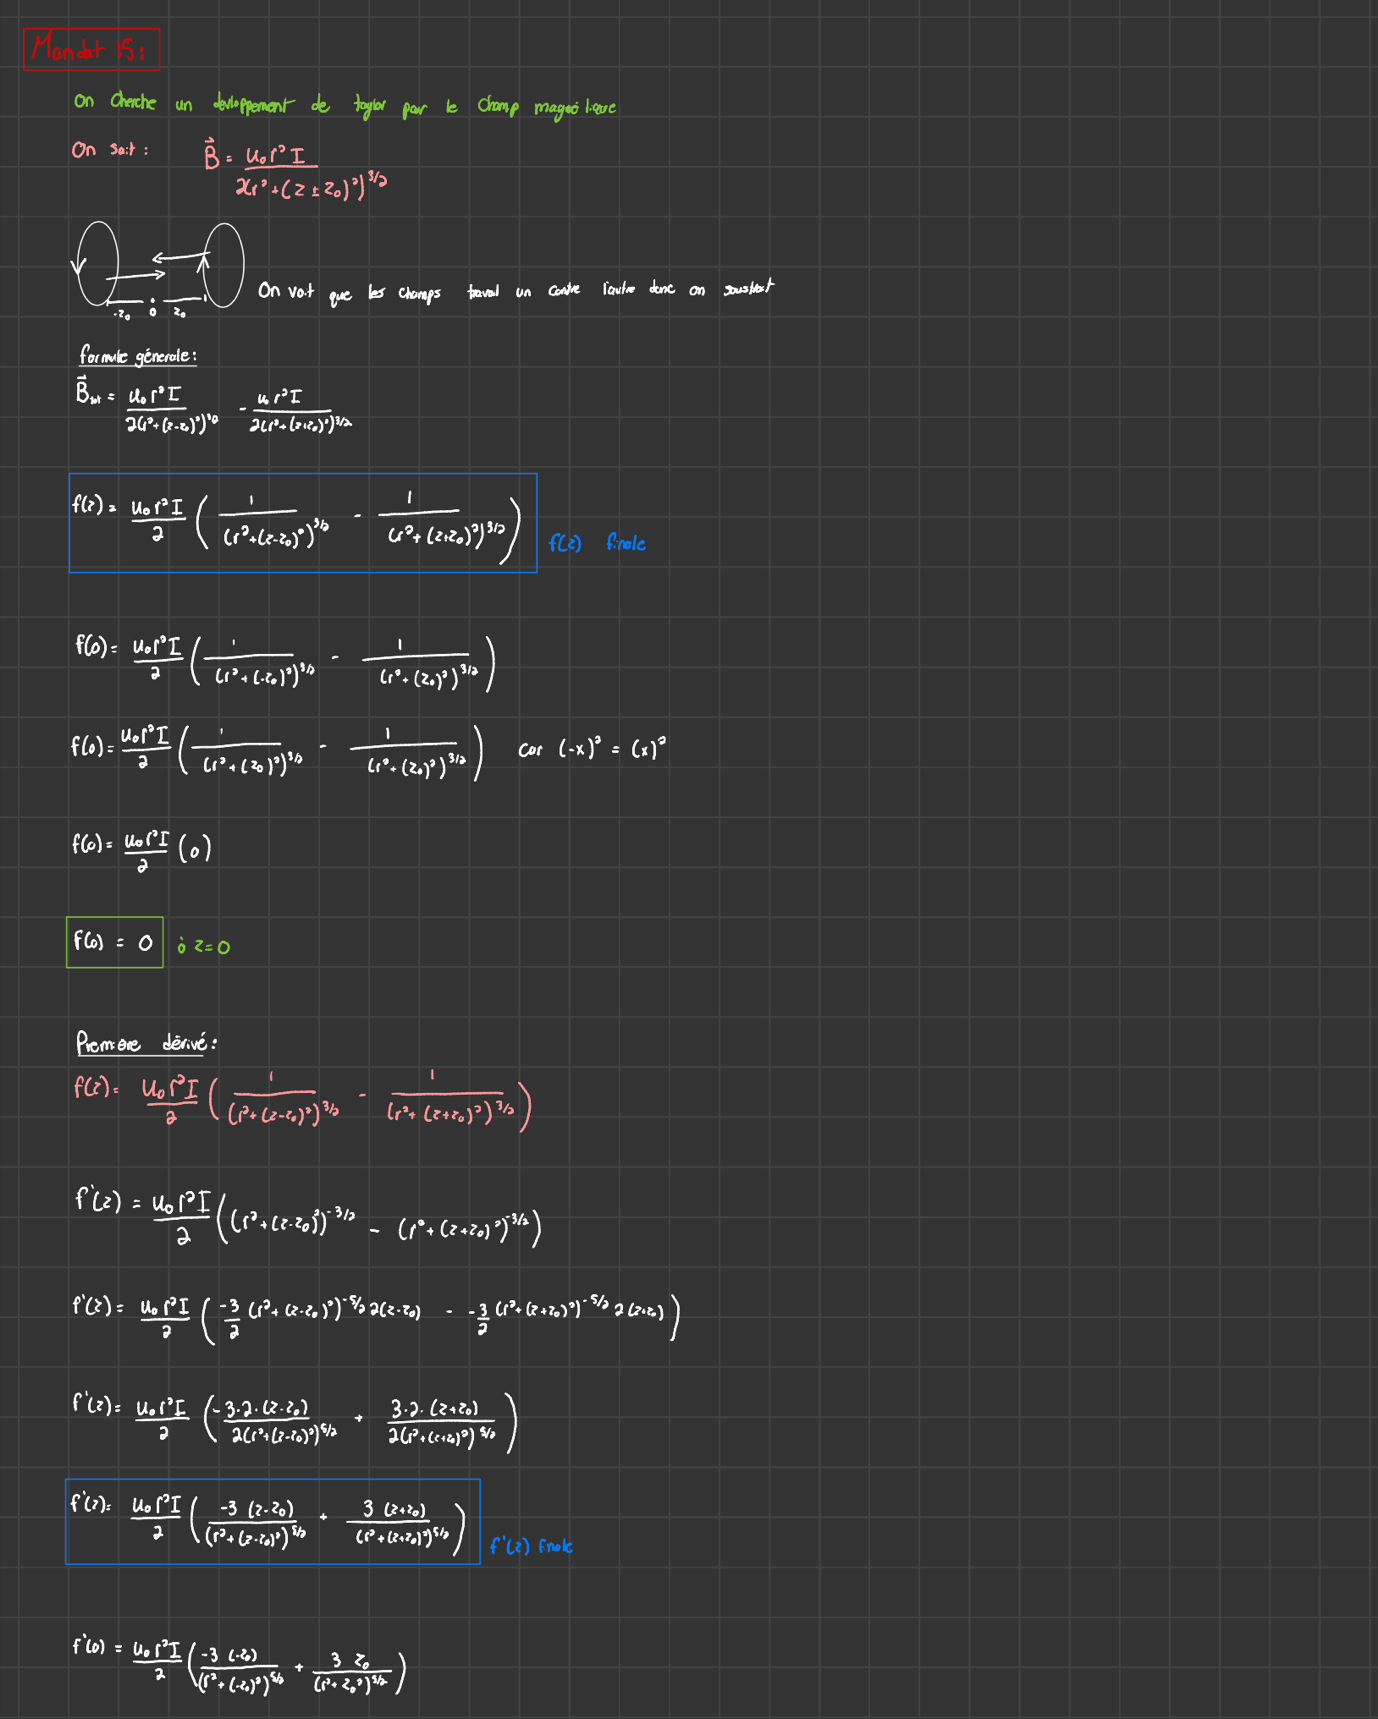 Mandat 15:
On cherche un devloppement de taylor par le champ magnétique
On sait : B⃗ = u₀r²I / 2(r²+(z±z₀)²)^3/2
-z₀ 0 z₀
On voit que les champs travail un contre l'autre donc on soustrait
formule génerale:
B⃗tot = u₀r²I / 2(r²+(z-z₀)²)^3/2 - u₀r²I / 2(r²+(z+z₀)²)^3/2
f(z) = u₀r²I/2 ( 1/(r²+(z-z₀)²)^3/2 - 1/(r²+(z+z₀)²)^3/2 ) f(z) finale
f(0) = u₀r²I/2 ( 1/(r²+(-z₀)²)^3/2 - 1/(r²+(z₀)²)^3/2 )
f(0) = u₀r²I/2 ( 1/(r²+(z₀)²)^3/2 - 1/(r²+(z₀)²)^3/2 ) car (-x)² = (x)²
f(0) = u₀r²I/2 (0)
f(0) = 0 à z=0
Premiere dérivé:
f(z) = u₀r²I/2 ( 1/(r²+(z-z₀)²)^3/2 - 1/(r²+(z+z₀)²)^3/2 )
f'(z) = u₀r²I/2 ( (r²+(z-z₀)²)^-3/2 - (r²+(z+z₀)²)^-3/2 )
f'(z) = u₀r²I/2 ( -3/2 (r²+(z-z₀)²)^-5/2 2(z-z₀) - -3/2 (r²+(z+z₀)²)^-5/2 2(z+z₀) )
f'(z) = u₀r²I/2 ( -3·2·(z-z₀) / 2(r²+(z-z₀)²)^5/2 + 3·2·(z+z₀) / 2(r²+(z+z₀)²)^5/2 )
f'(z) = u₀r²I/2 ( -3(z-z₀) / (r²+(z-z₀)²)^5/2 + 3(z+z₀) / (r²+(z+z₀)²)^5/2 ) f'(z) finale
f'(0) = u₀r²I/2 ( -3(-z₀) / (r²+(-z₀)²)^5/2 + 3z₀ / (r²+z₀²)^5/2 )